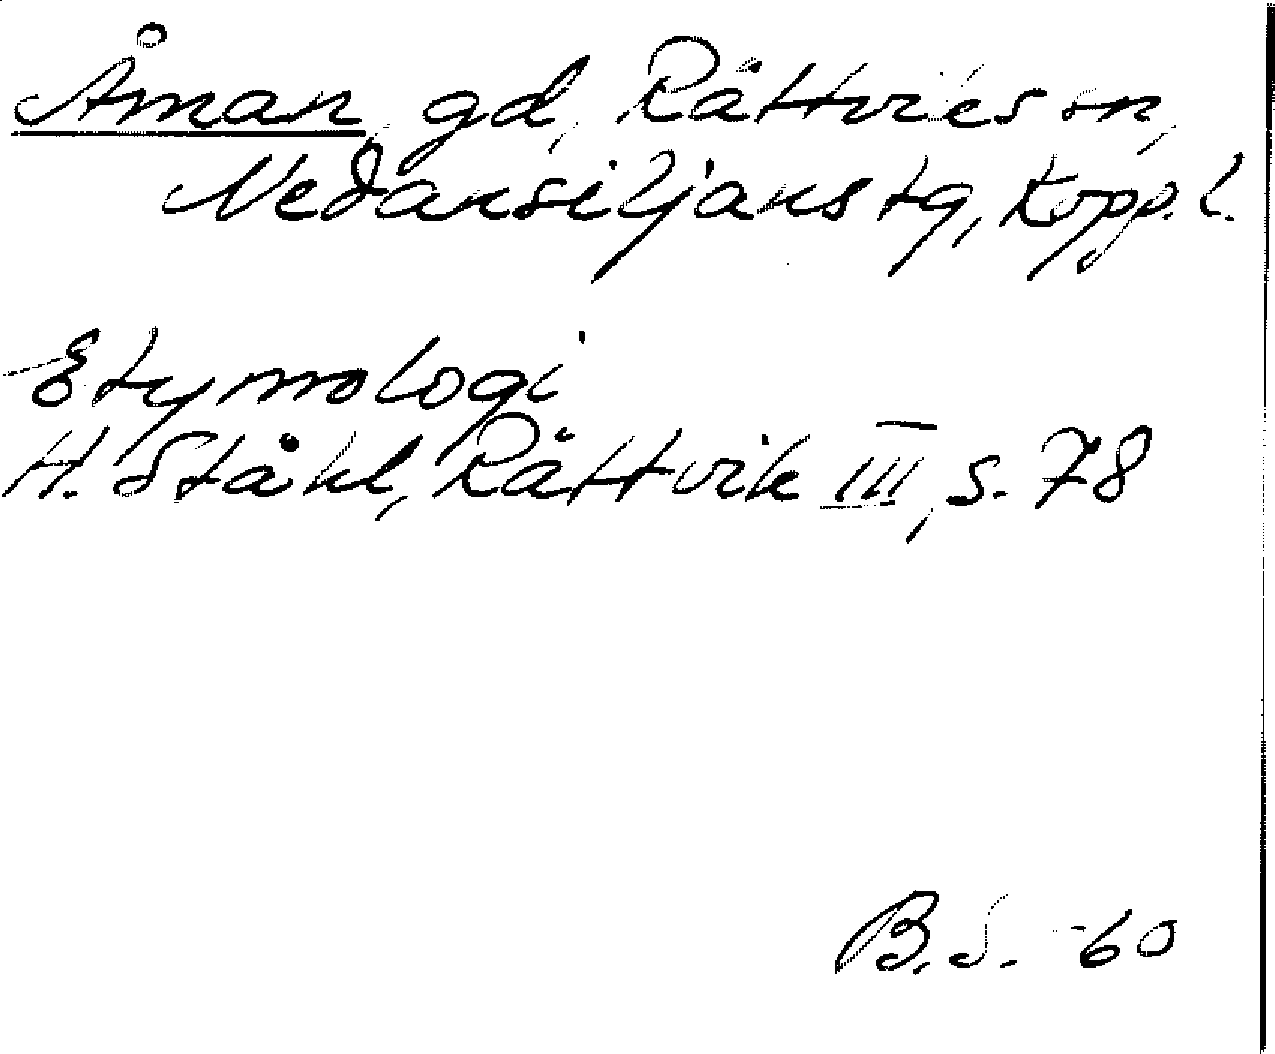 Åman, gd, Rättviks sn,
Nedansiljans tg, Kopp. l.
Etymologi
H. Ståhl, Rättvik III, s. 78
B. S. -60